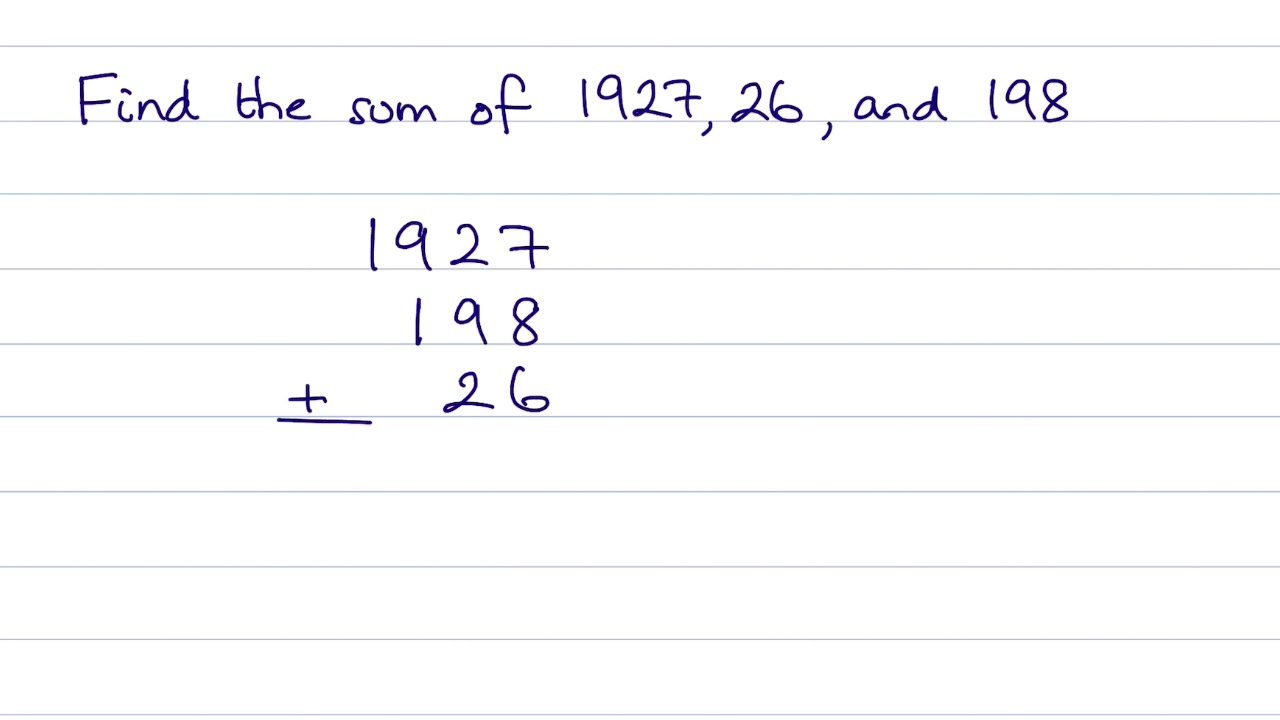 Find the sum of 1927, 26, and 198
1927
198
+ 26